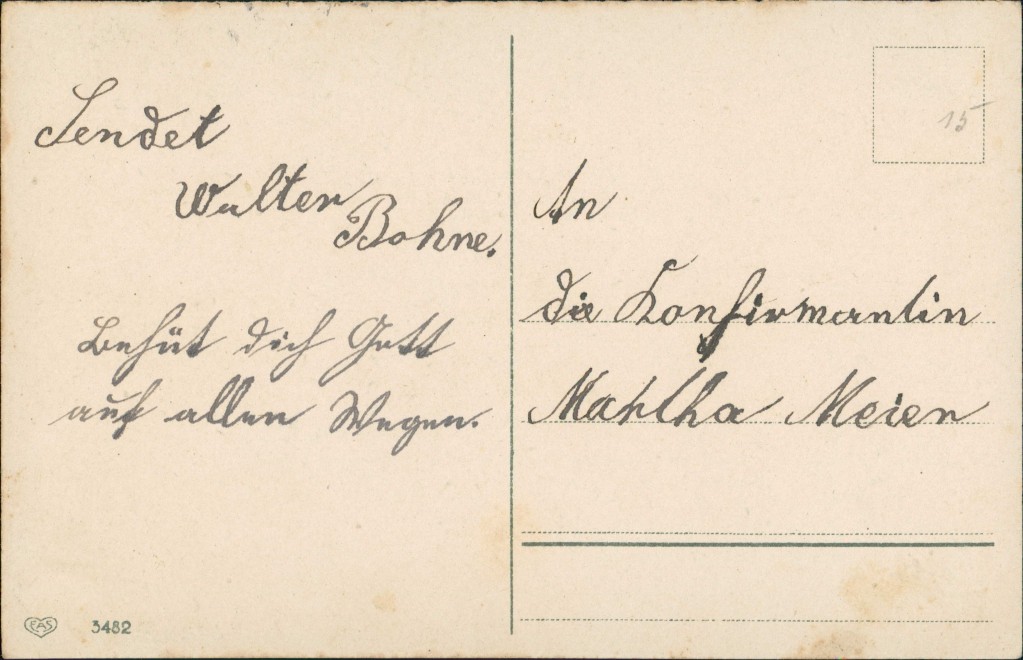 Sendet
Walter
Bohne.
Behüt dich Gott
auf allen Wegen.
EAS 3482
15
An
die Konfirmantin
Martha Meier